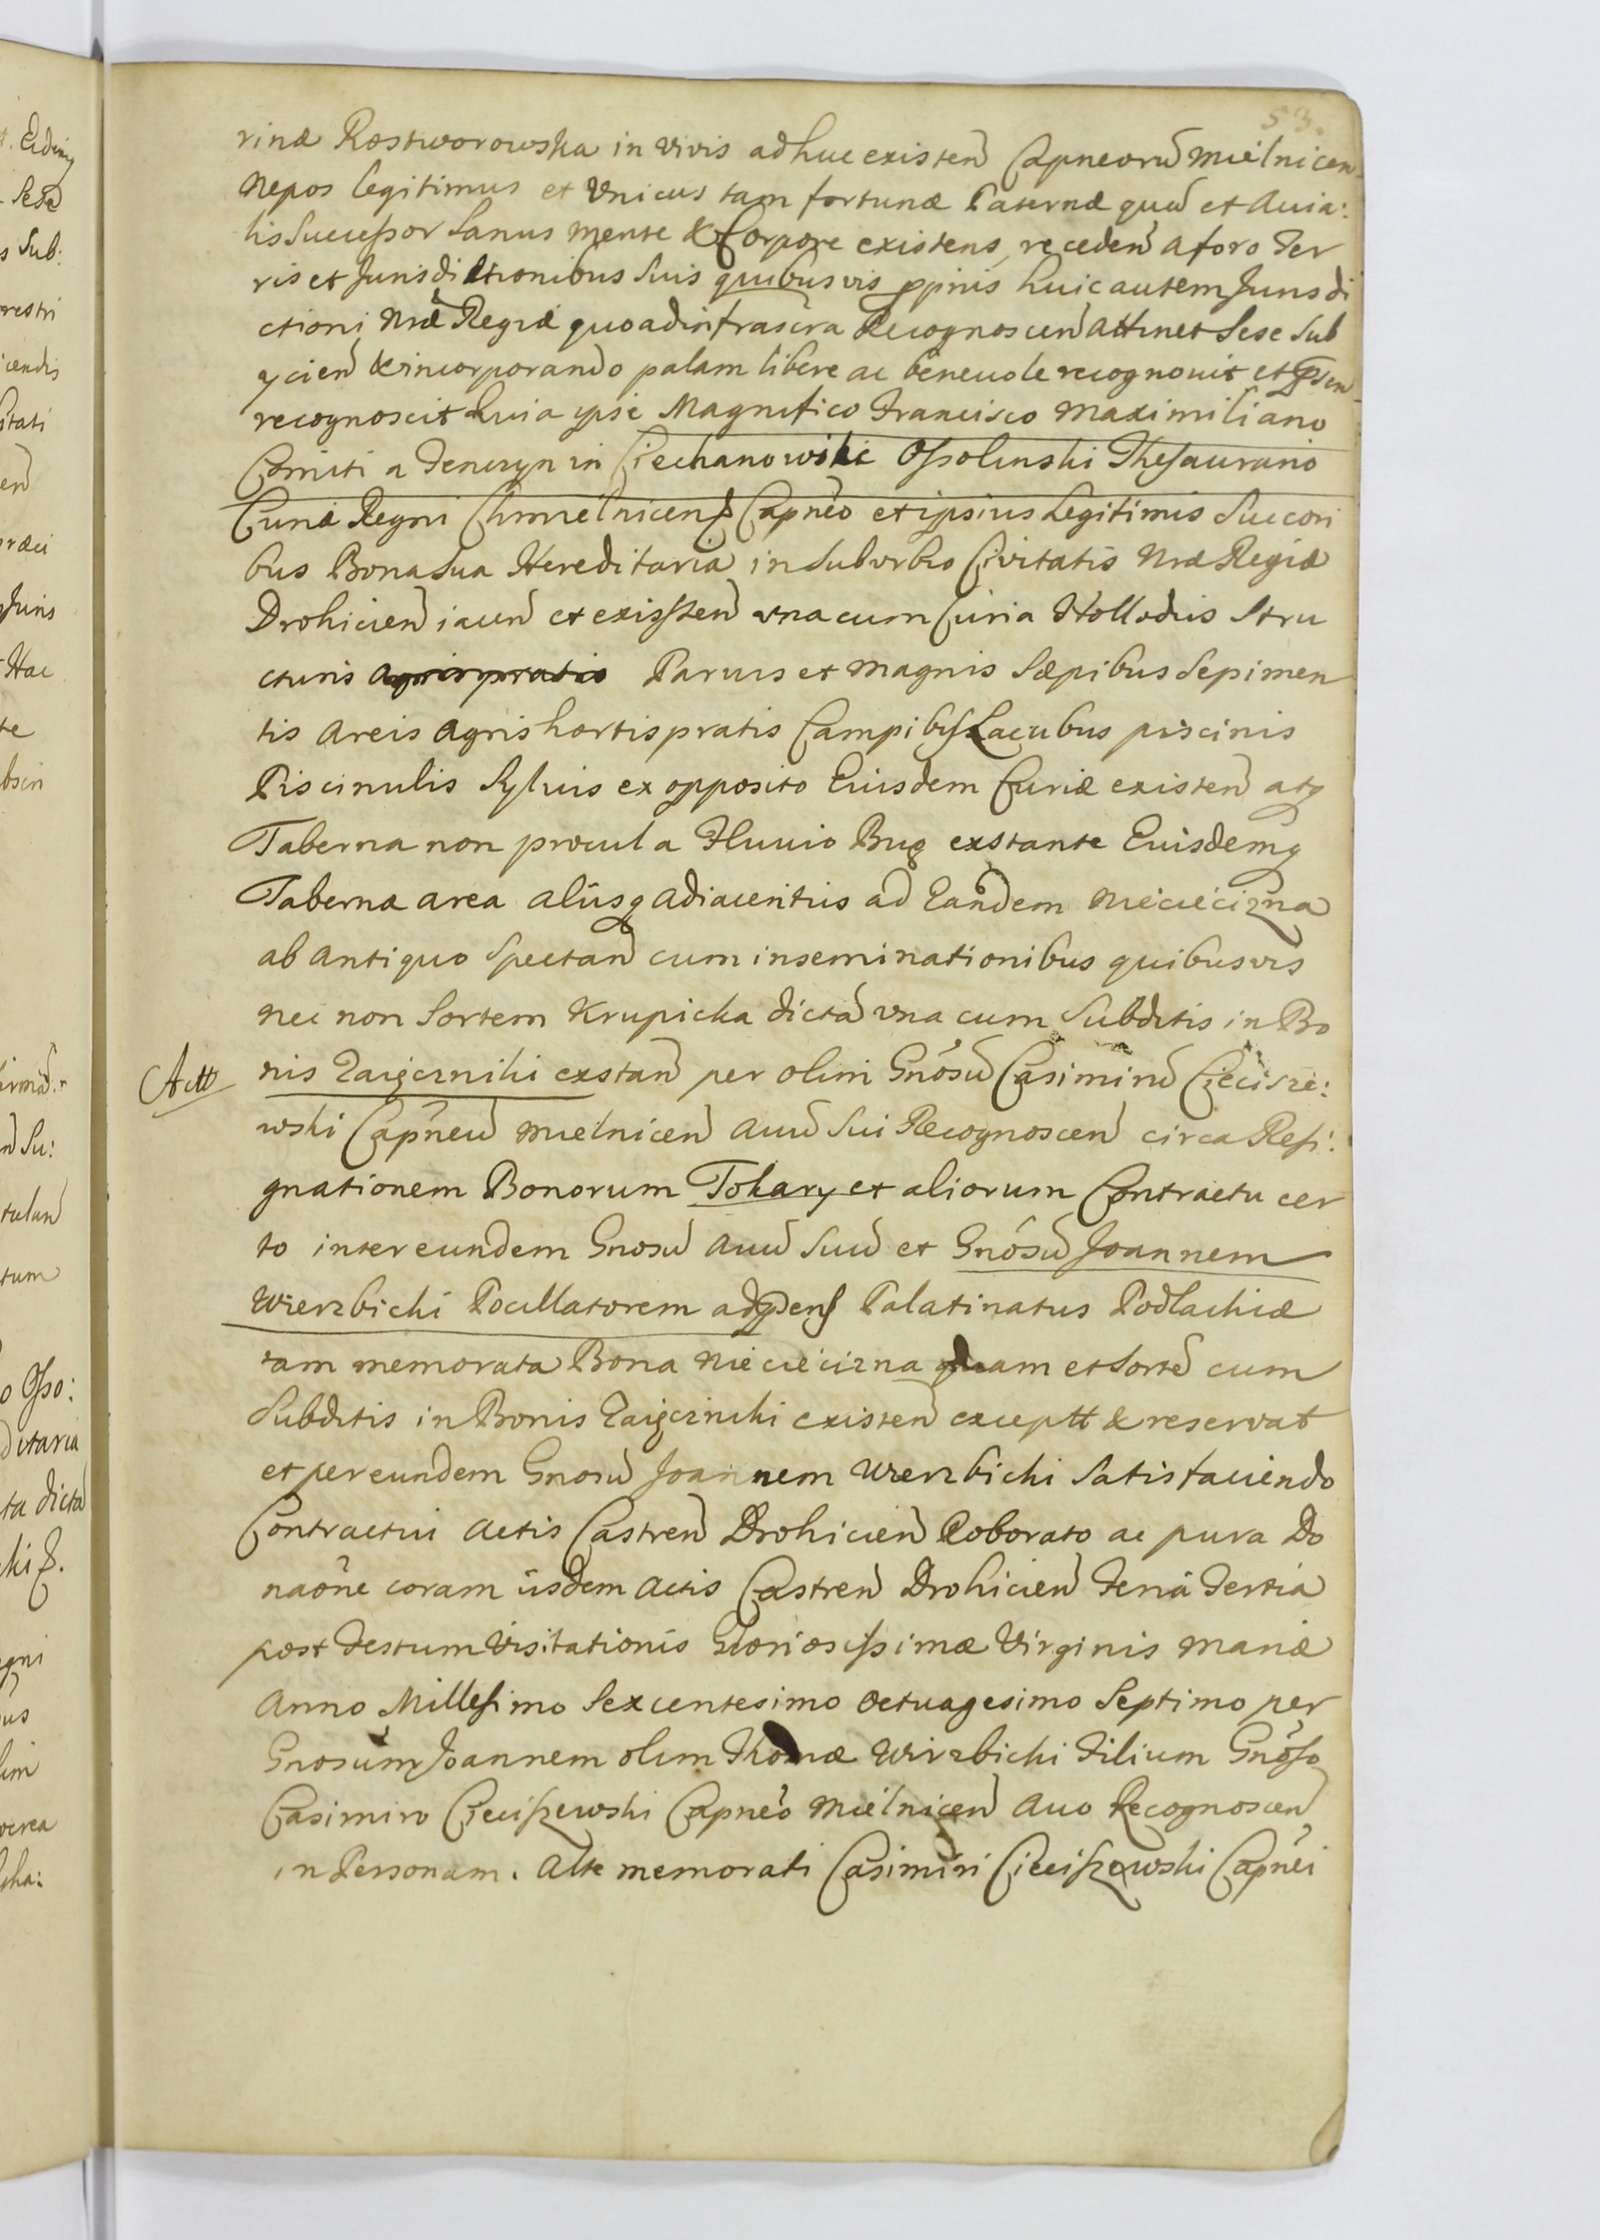 53.
rinæ Rostworowska in vivis adhuc existeñ Capneorũ Mielnicen
Nepos legitimus et Vnicus tam fortunæ Paternæ quũ et Auia:
lis Successor Sanus Mente & Corpore existens, recedeñ a foro Ter
ris et Jurisdictionibus Suis quibusvis ppriis huic autem Jurisdi
ctioni Nræ Regiæ quoad infrascra Recognosceñ attinet Sese Sub
ycieñ & incorporando palam libere ac beneuole recognouit et
recognoscit quia ipse Magnifico Francisco Maximiliano
Comiti a Tenczyn in Ciechanowiec Ossolinski Thesaurario
Curiæ Regni Chmielnicens Capneo et ipsius Legitimis Succori
bus Bona Sua Hereditaria in Suburbio Civitatis Nræ Regiæ
Drohicieñ iaceñ et existeñ vna cum Curia Hollodiis Stru
cturis agris pratis Paruis et Magnis Sæpibus Sepimen
tis Areis Agris hortis pratis Campibus Lacubus piscinis
Piscinulis Syluis ex opposito Euisdem Curiæ existeñ atq
Taberna non procul a Fluuio Bug exstante Euisdemq
Tabernæ area aliisq adiacentiis ad Eandem Nieciecizna
ab Antiquo Spectañ cum inseminationibus quibusvis
nec non Sortem Krupicka dictã vna cum Subditis in Bo
Actt
nis Zaięczniki exstañ per olim Gnosũ Casimirũ Ciecisze:
wski Capneũ Mielniceñ Auũ Sui Recognosceñ circa Resi:
gnationem Bonorum Tokary et aliorum Contractu cer
to inter eundem Gnosũ Auũ Suũ et Gnosũ Joannem
Wierzbicki Pocillatorem Palatinatus Podlachiæ
tam memorata Bona Nieciecizna quam et Sortẽ cum
Subditis in Bonis Zaięczniki existeñ exceptt & reservat
et per eundem Gnosũ Joannem Wierzbicki Satisfaciendo
Contractui Actis Castreñ Drohicieñ Roborato ac pura Do
naõne coram iisdem Actis Castreñ Drohicieñ Feria Tertia
post Festum Visitationis Gloriosissimæ Virginis Mariæ
Anno Millesimo Sexcentesimo Octuagesimo Septimo per
Gnosum Joannem olim Thomæ Wirzbicki Filium Gnoso
Casimiro Cieciszewski Capneo Mielniceñ Auo Recognosceñ
in Personam. Alte memorati Casimiri Cieciszewski Capnei